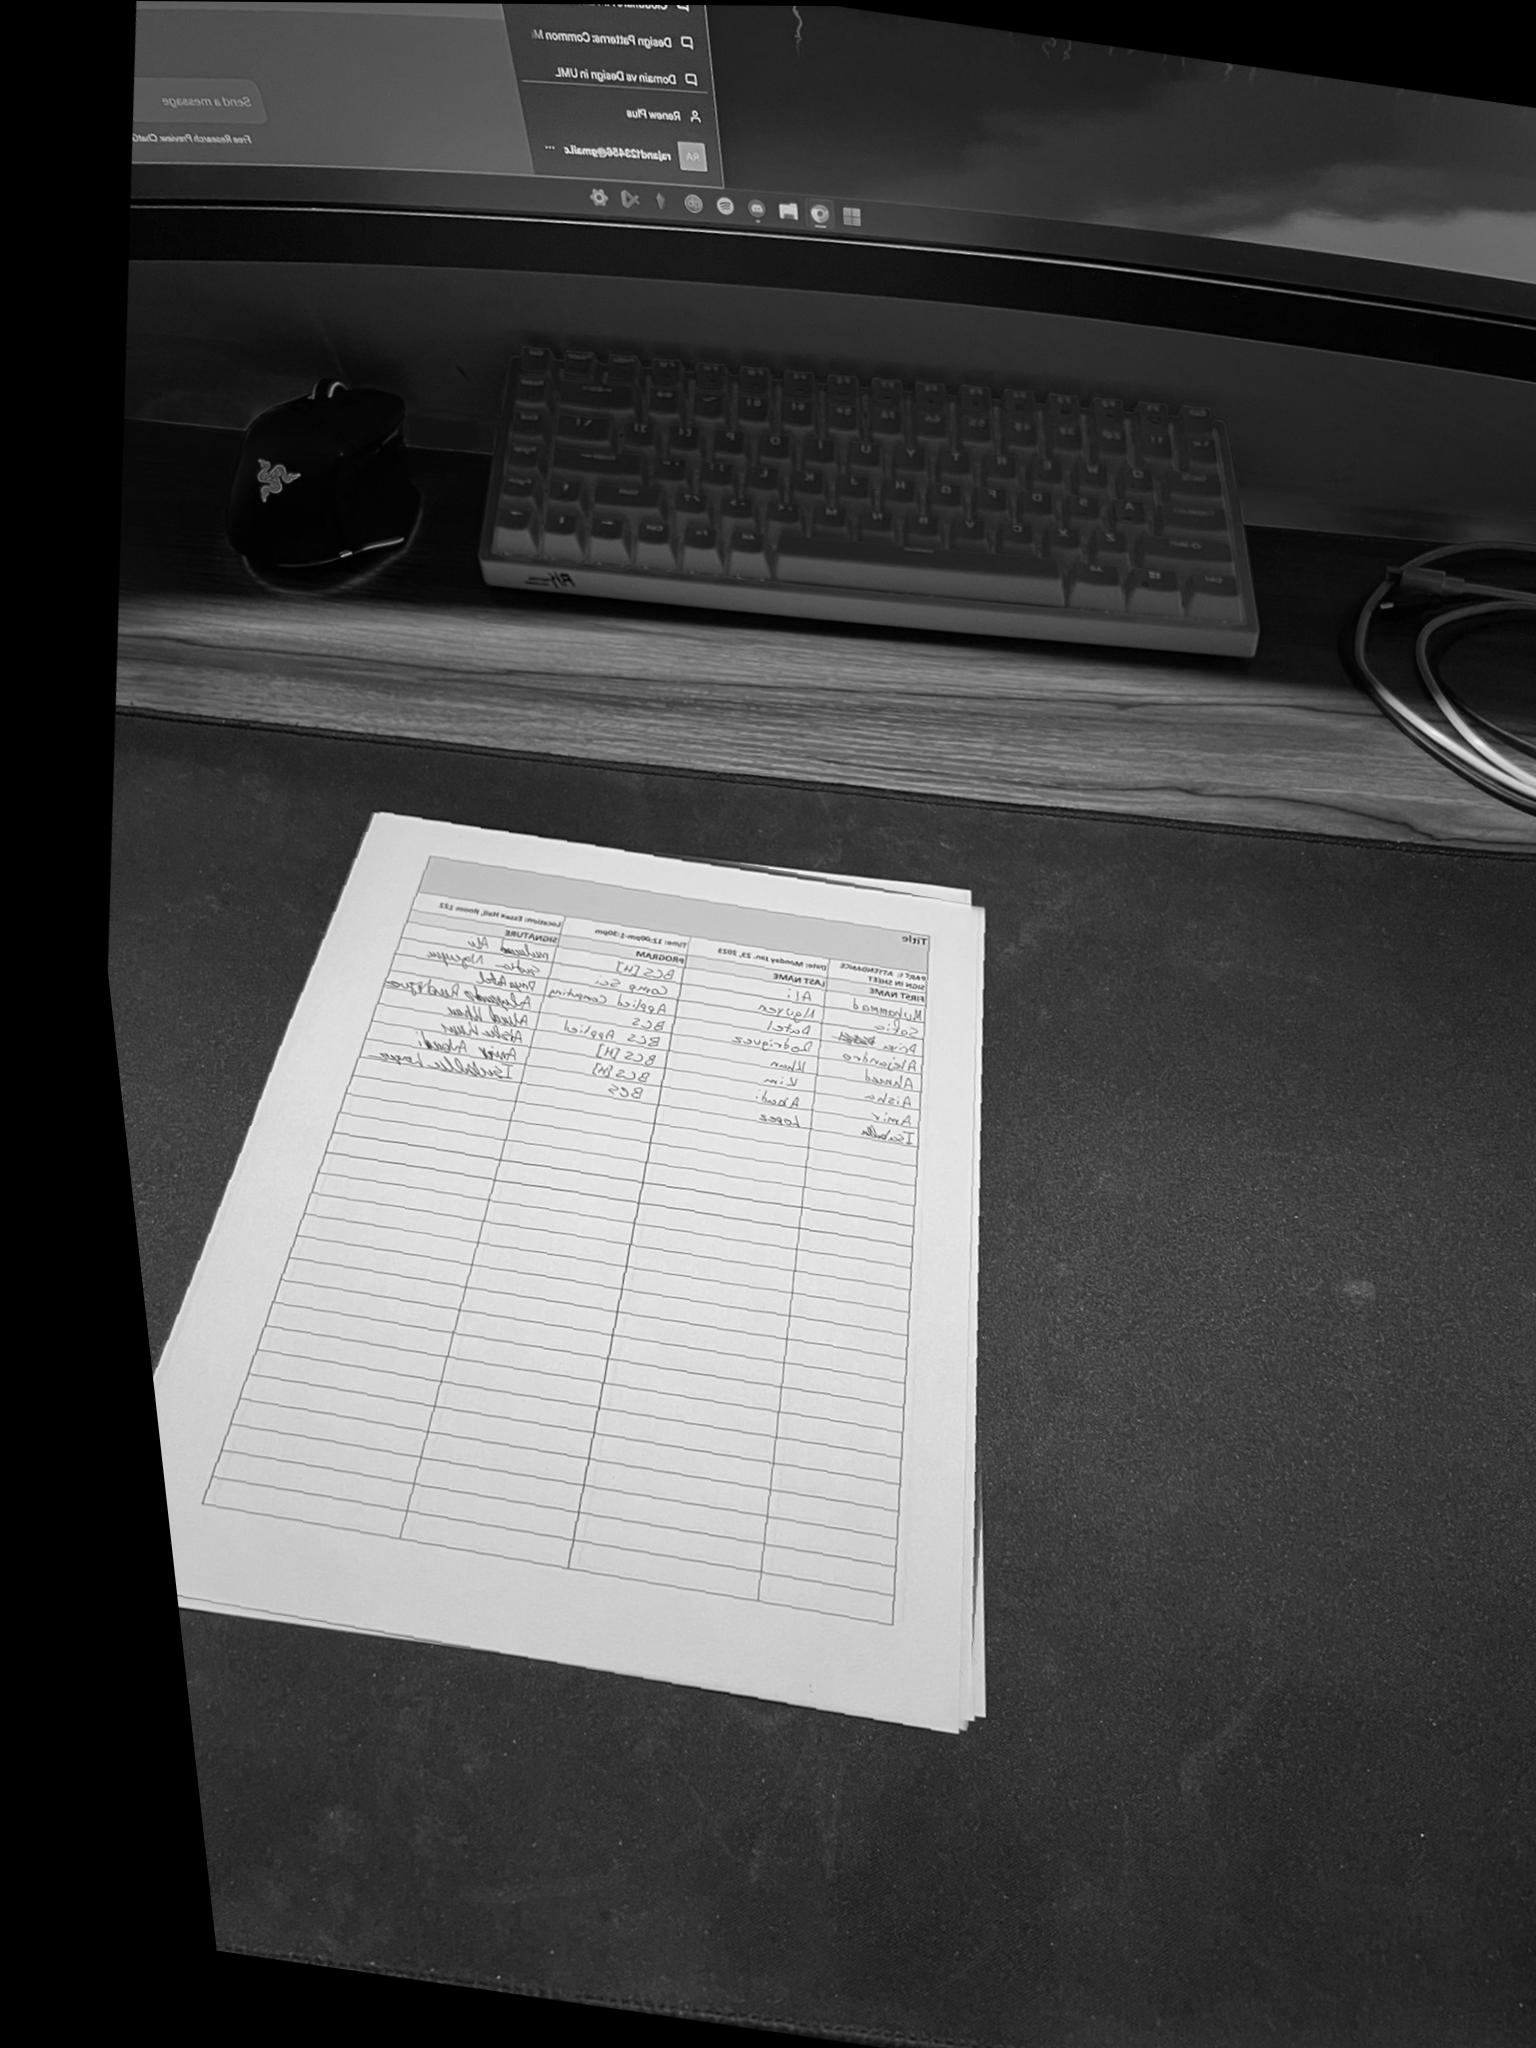 Design Patterns: Common M
Domain vs Design in UML
Renew Plus
RA rajand123456@gmail.c ...
Send a message
Free Research Preview. ChatG
Title
PART I: ATTENDANCE SIGN IN SHEET Date: Monday Jan. 23, 2023 Time: 12:00pm-1:30pm Location: Essex Hall, Room 122
FIRST NAME LAST NAME PROGRAM SIGNATURE
Muhammad Ali BCS [H] Ali
Sofia Nguyen Comp Sci Sofia Nguyen
Priya Patel Applied Computing Priya Patel
Alejandro Rodriguez BCS Alejandro Rodriguez
Ahmed Khan BCS Applied Ahmed Khan
Aisha Kim BCS [H] Aisha Kim
Amir Abadi BCS [H] Amir Abadi
Isabella Lopez BCS Isabella Lopez